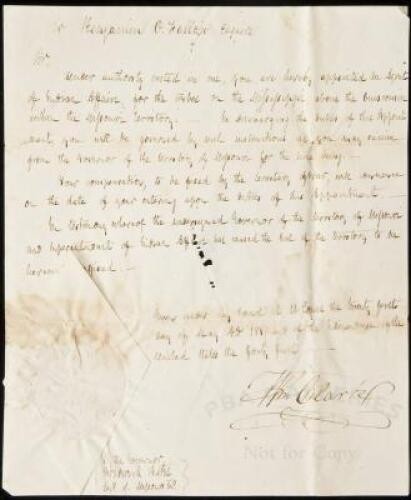 To Benjamin O'Fallon Esquire
Sir,
Under authority vested in me, you are hereby appointed an Agent
of Indian Affairs for the tribes on the Mississippi above the
within the Missouri Territory. In discharging the duties of this Appoint
ment, you will be governed by such instructions as you may receive
from the Governor of the Territory of Missouri for the time being.
Your compensation, to be fixed by the Secretary of War, will commence
on the date of your entering upon the duties of this Appointment
In testimony whereof the undersigned Governor of the Territory of Missouri
and Superintendent of Indian has caused the Seal of the Territory to be
hereunto affixed.
Given under my hand at St Louis the twenty first
day of May AD and of the Independence of the
United States the forty first
Wm Clark
By the Governor
Frederick Bates
Sec. of Missouri Ty
PBA GALLERIES
Not for Copy